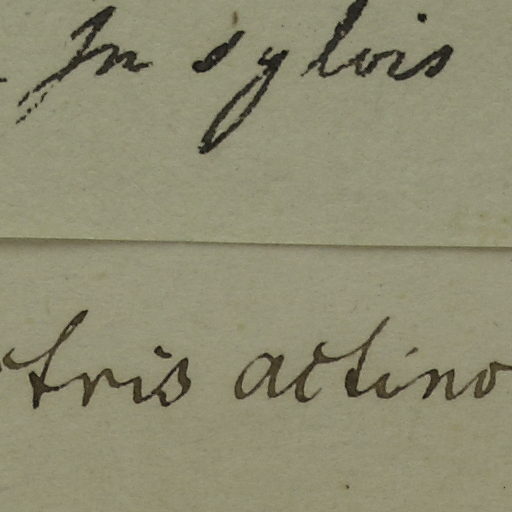 In sylvis
ctris actino